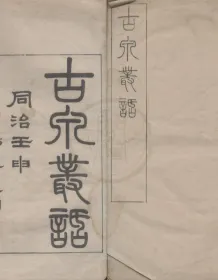 古泉叢話
古泉叢話
同治壬申